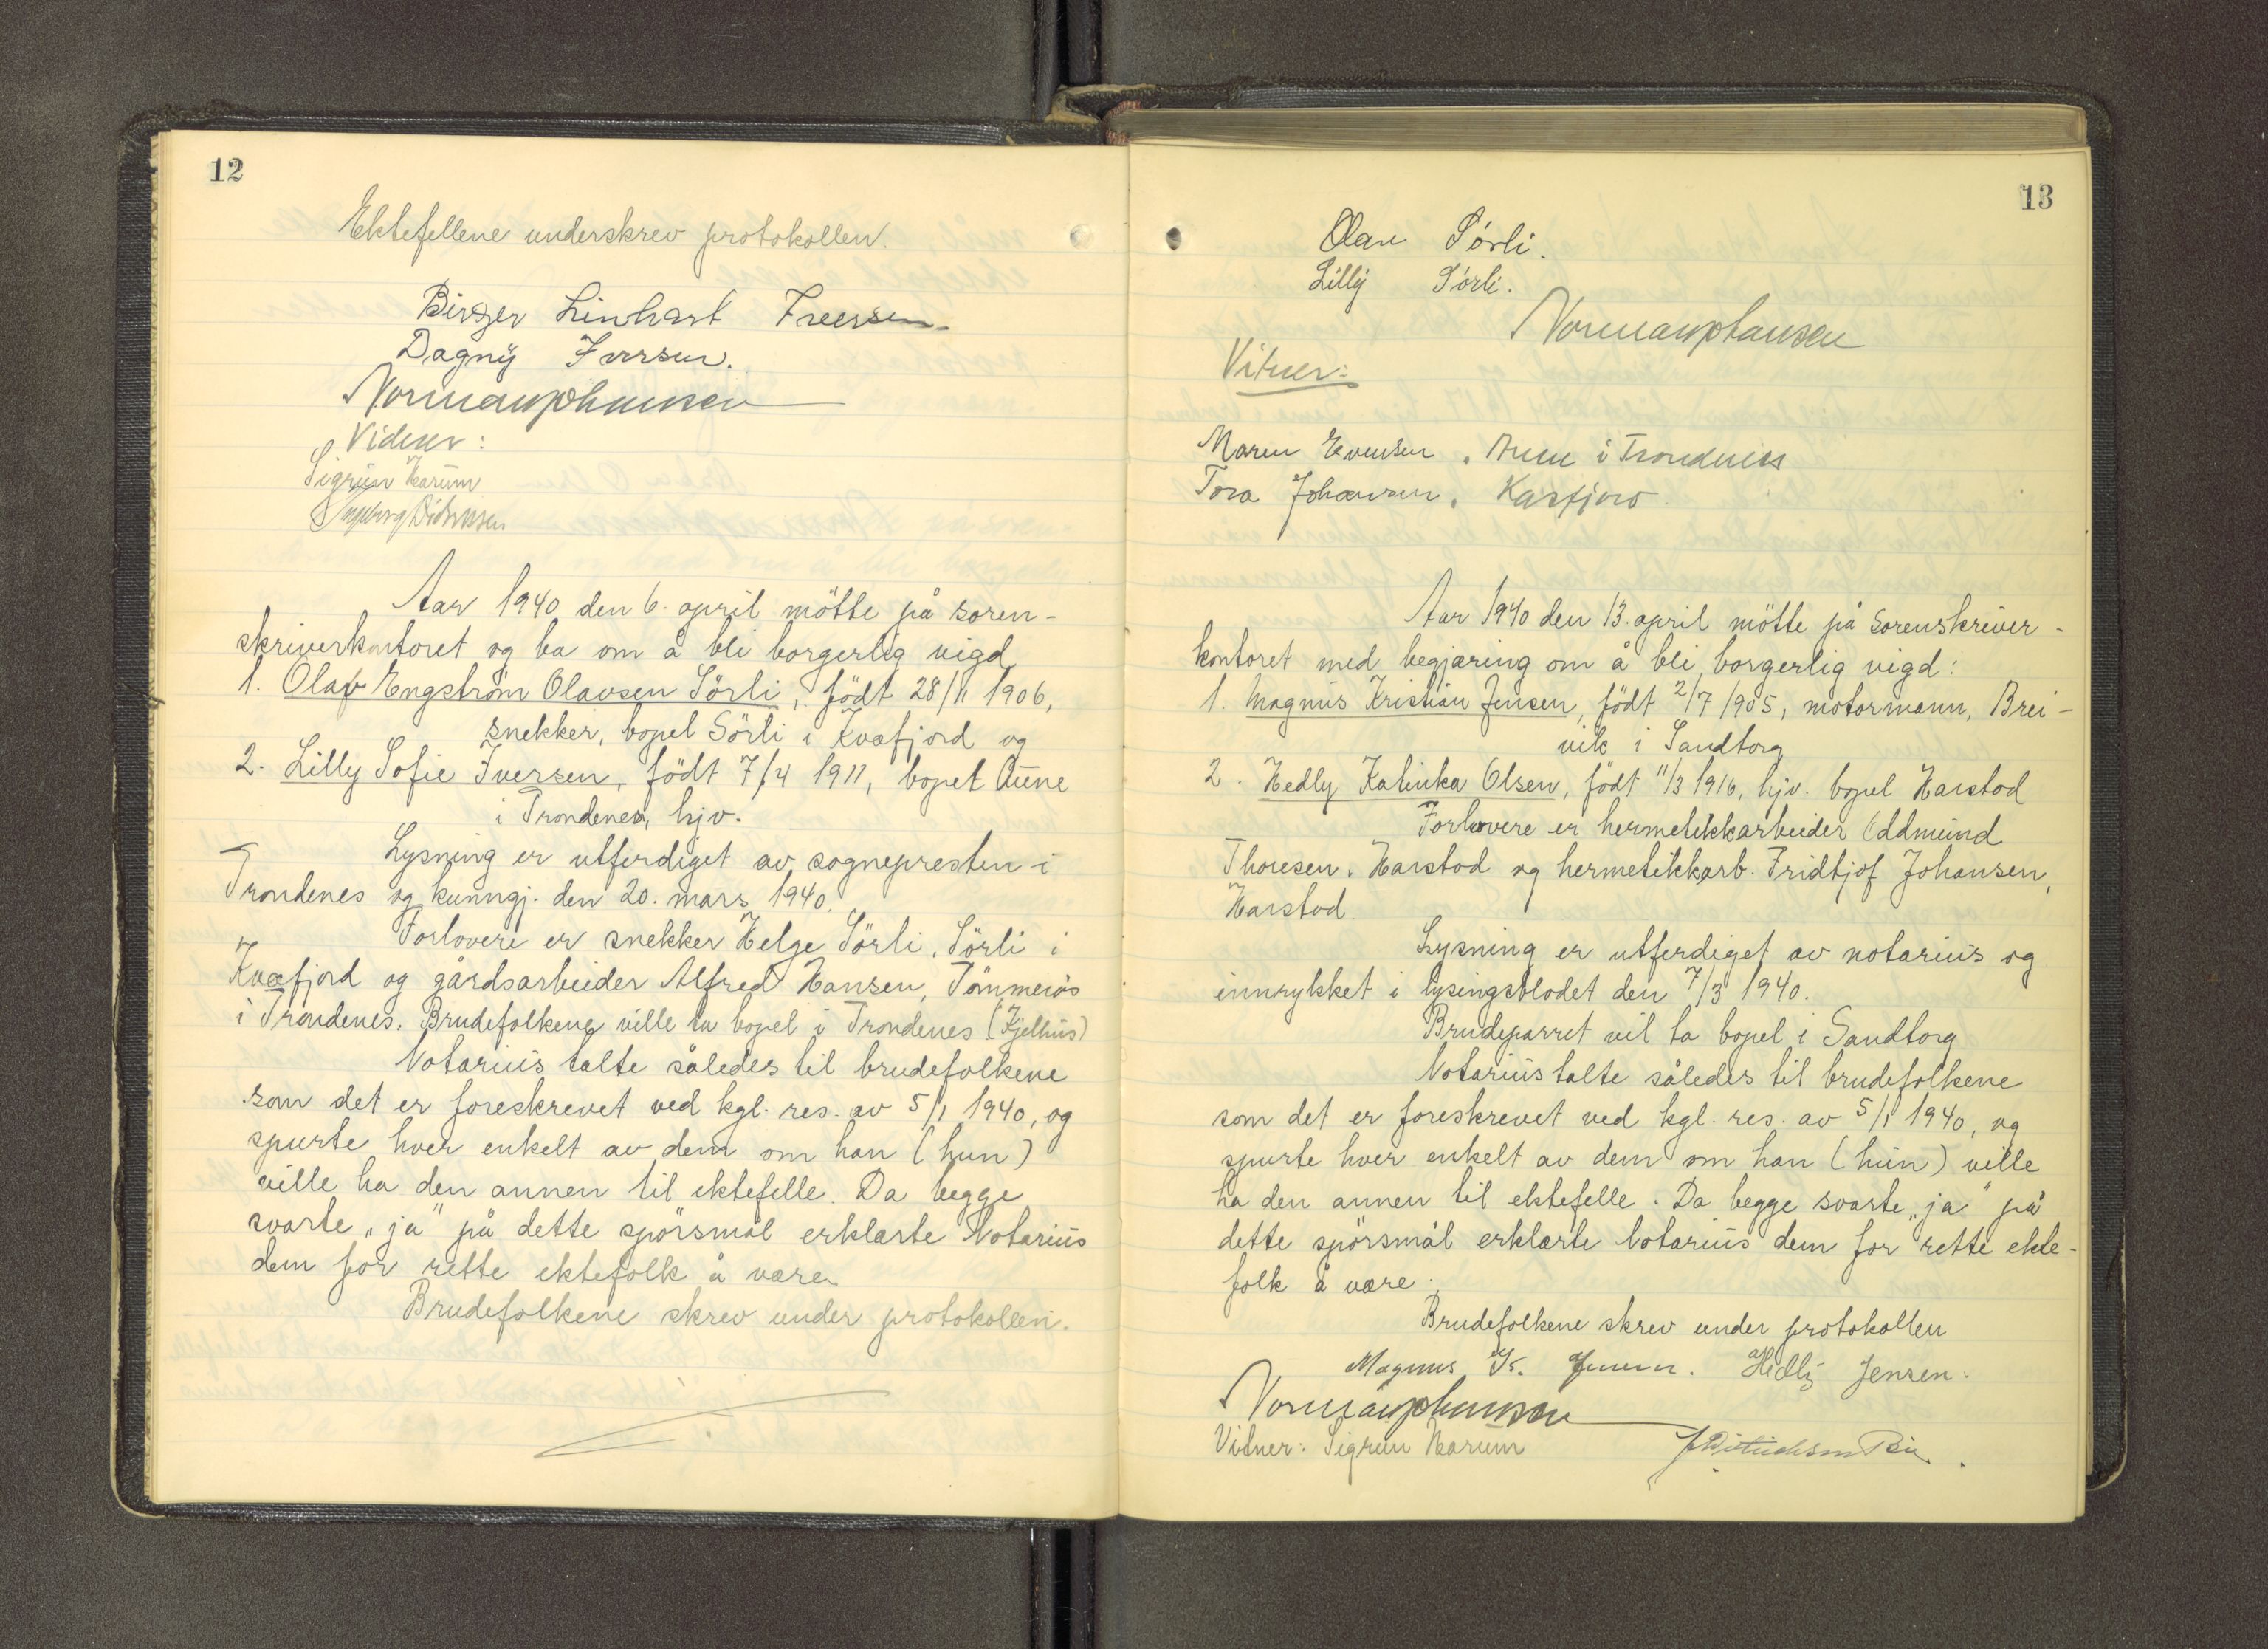 12
Ektefellene underskrev protokollen.
Birger Linhart Iversen.
Dagny Iversen.
Normann Johansen
Vidner:
Sigrun Harum
Ingeborg Didriksen
Aar 1940 den 6. april mötte på soren-
skriverkontoret og ba om å bli borgerlig vigd
1. Olav Engström Olavsen Sörli, födt 28/11 1906,
snekker, bopel Sörli i Kvæfjord og
2. Lilly Sofie Iversen, födt 7/4 1911, bopel Aune
i Trondenes, hjv.
Lysning er utferdiget av sognepresten i
Trondenes og kunngj. den 20. mars 1940.
Forlovere er snekker Helge Sörli, Sörli i
Kvæfjord og gårdsarbeider Alfred Hansen,
i Trondenes. Brudefolkene ville ta bopel i Trondenes (Fjelhus)
Notarius talte således til brudefolkene
som det er foreskrevet ved kgl. res. av 5/1 1940, og
spurte hver enkelt av dem om han (hun)
ville ha den annen til ektefelle. Da begge
svarte „ja" på dette spörsmål erklærte Notarius
dem for rette ektefolk å være.
Brudefolkene skrev under protokollen.
13
Olav Sörli.
Lilly Sörli.
Normann Johansen
Vitner:
Maren Evensen, Aune i Trondenes
Tora Johansen, Kasfjord.
Aar 1940 den 13. april mötte på Sorenskriver-
kontoret med begjæring om å bli borgerlig vigd:
1. Magnus Kristian Jensen, födt 2/7 1905, motormann, Brei-
vik i Sandtorg
2. Hedly Kalinka Olsen, födt 11/3 1916, hjv. bopel Harstad
Forlovere er hermetikkarbeider Oddmund
Thoresen, Harstad og hermetikkarb. Fridtjof Johansen,
Harstad.
Lysning er utferdiget av notarius og
innrykket i lysingsbladet den 7/3 1940.
Brudeparret vil ta bopel i Sandtorg
Notarius talte således til brudefolkene
som det er foreskrevet ved kgl. res. av 5/1 1940, og
spurte hver enkelt av dem om han (hun) ville
ha den annen til ektefelle. Da begge svarte „ja" på
dette spörsmål erklærte Notarius dem for rette ekte-
folk å være.
Brudefolkene skrev under protokollen
Magnus K. Jensen. Hedly Jensen.
Normann Johansen
Vitner: Sigrun Harum